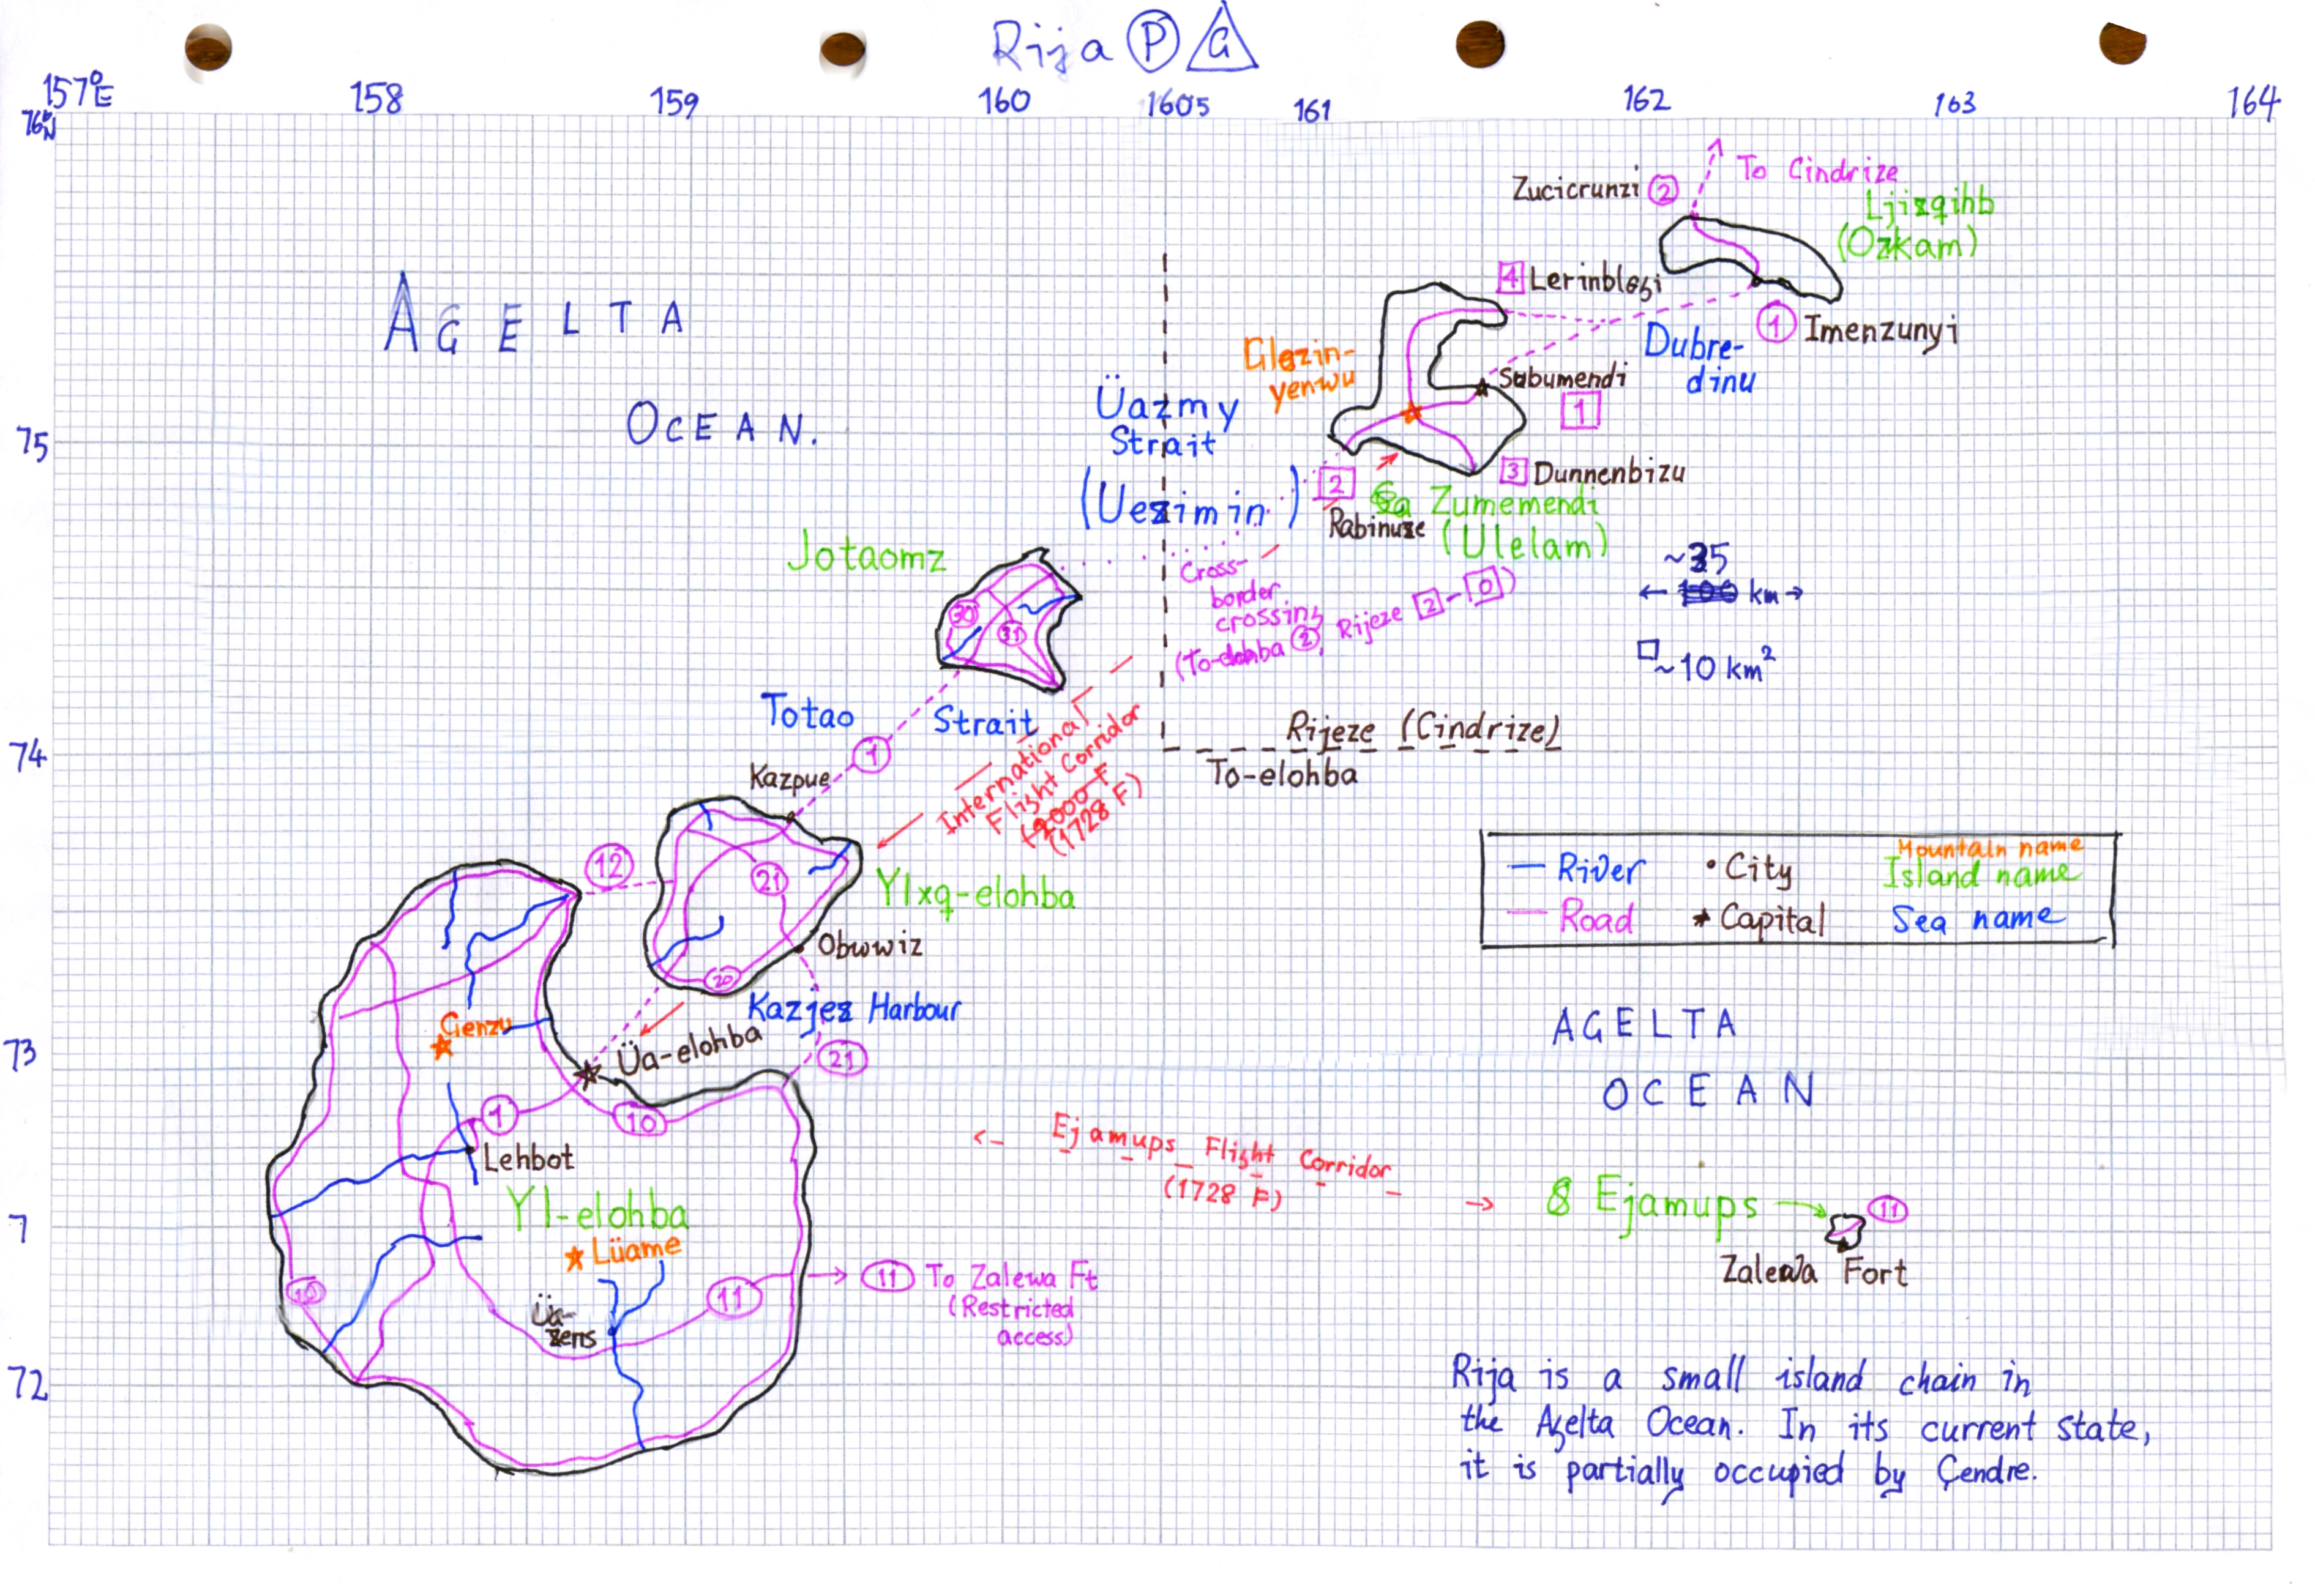 Rija P G
157°E 158 159 160 1605 161 162 163 164
76°N
75
74
73
7
72
AGELTA
OCEAN.
Zucicrunzi 2
To Cindrize
Ljizqihb
(Ozkam)
4 Lerinblezi
1 Imenzunyi
Dubre-
dinu
Glezin-
yenwu
Subumendi
1
Üazmy
Strait
(Uezimin)
3 Dunnenbizu
2
Rabinuze
Zumemendi
(Ulelam)
Jotaomz
30
31
Cross-
border
crossing
(To-elohba 2, Rijeze 2-0)
~35
← km →
~10 km²
Totao Strait
1
Kazpue
International
Flight Corridor
(1728 F)
Rijeze (Cindrize)
To-elohba
12
21
Ylxq-elohba
Obuwiz
20
Kazjez Harbour
River
Road
City
Capital
Mountain name
Island name
Sea name
Gienzu
Üa-elohba
21
1
10
Lehbot
Yl-elohba
Lüame
10
Üa-
zens
11
11 To Zalewa Ft
(Restricted
access)
AGELTA
OCEAN
<- Ejamups Flight Corridor →
(1728 F)
8 Ejamups
11
Zalewa Fort
Rija is a small island chain in
the Agelta Ocean. In its current state,
it is partially occupied by Çendre.